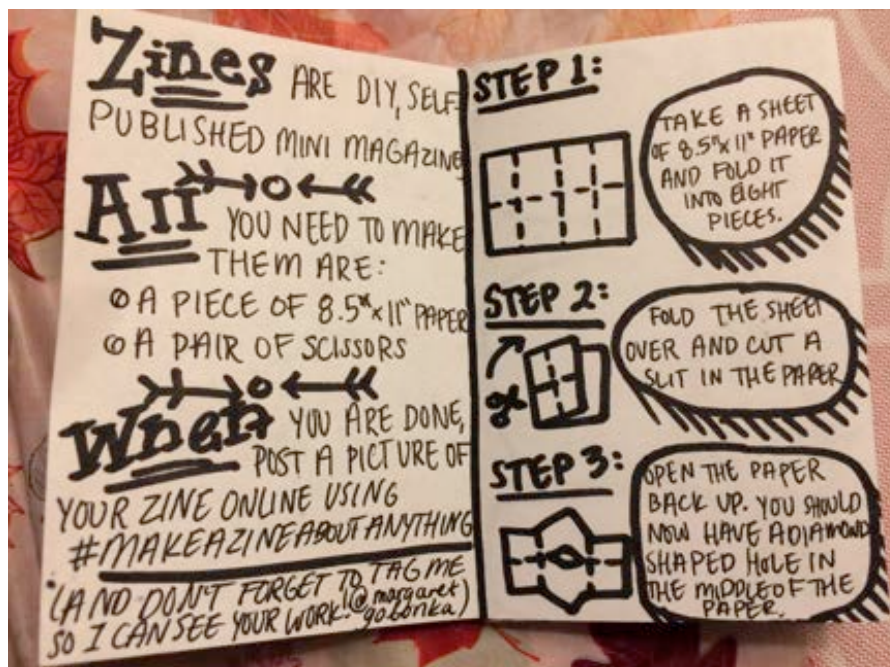 Zines ARE DIY, SELF-
PUBLISHED MINI MAGAZINE
All YOU NEED TO MAKE
THEM ARE:
A PIECE OF 8.5"x11" PAPER
A PAIR OF SCISSORS
When YOU ARE DONE,
POST A PICTURE OF
YOUR ZINE ONLINE USING
#MAKEAZINEABOUTANYTHING
(AND DON'T FORGET TO TAG ME
SO I CAN SEE YOUR WORK! @margaret
gobonka)
STEP 1:
TAKE A SHEET
OF 8.5"x11" PAPER
AND FOLD IT
INTO EIGHT
PIECES.
STEP 2:
FOLD THE SHEET
OVER AND CUT A
SLIT IN THE PAPER
STEP 3:
OPEN THE PAPER
BACK UP. YOU SHOULD
NOW HAVE A DIAMOND
SHAPED HOLE IN
THE MIDDLE OF THE
PAPER.